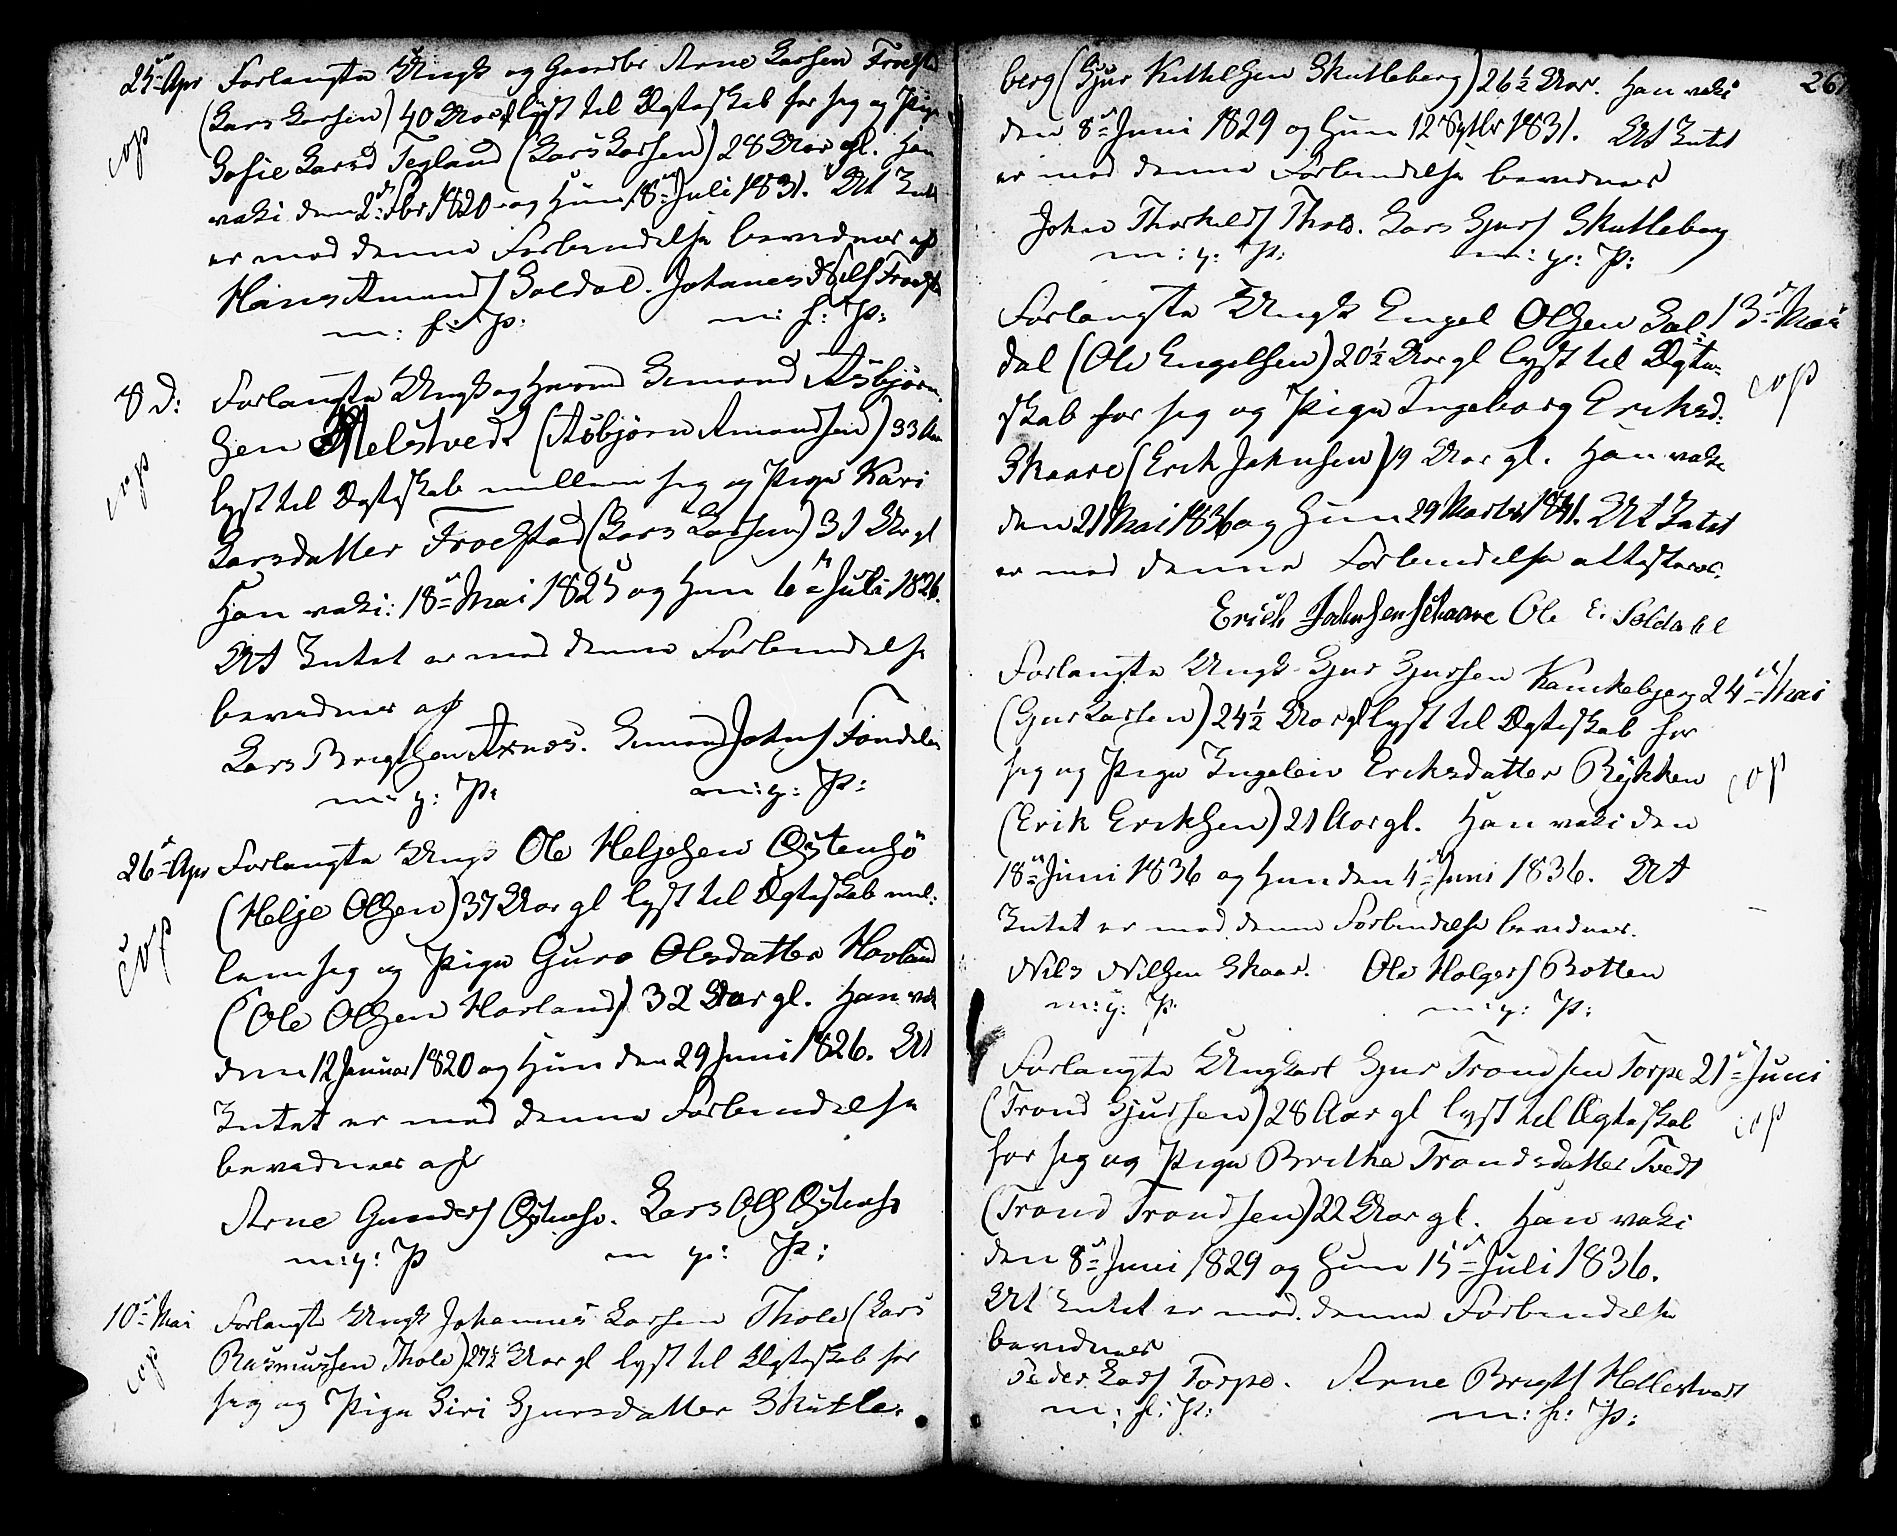 25 Apr Forlangte Ungk og Gaardbr Arne Larsen Froestad
(Lars Larsen) 40 Aar gl lyst til Ægteskab for sig og Pige
cop
Sofie Larsd Tegland (Lars Larsen) 28 Aar gl. Han
vaki den 2 Fbr 1820 og Hun 18 Juli 1831. At Intet
er mod denne Forbindelse bevidner af
Hans Amund/ Soldal. Johanes Nils/ Froestad
m: f: P: m: f: P:
8 d: Forlangte Ungk og Amund Asbjørn
sen Melstvedt (Asbjørn Amondsen) 33 Aar
cop
lyst til Ægteskab mellem sig og Pige Kari
Larsdatter Froestad (Lars Larsen) 31 Aar gl
Han vaki: 18 Mai 1825 og Hun 6 Juli 1826.
At Intet er mod denne Forbindelse
bevidner af
Lars Brigtsen Axnes. Simon John/
m: y: P: m: y: P:
26 Apr Forlangte Ungk Ole Heljesen Øystensø
(Helje Olsen) 37 Aar gl lyst til Ægteskab mel:
cop
lem sig og Pige Guro Olsdatter Havland
(Ole Olsen Havland) 32 Aar gl. Han vak
den 12 Januar 1820 og Hun den 29 Juni 1826. At
Intet er mod denne Forbindelse
bevidnes af
Arne Gunders/ Øystensø. Lars Ols Øystensø
m: y: P m y: P:
10 Mai Forlangte Ungk Johannes Larsen Thole (Lars
Rasmussen Thole) 27½ Aar gl lyst til Ægteskab for
cop
sig og Pige Siri Gjursdatter Skutle-
26
berg (Gjur Kittelsen Skutleberg) 26½ Aar. Han vaki
den 8 Juni 1829 og Hun 12 Sptbr 1831. At Intet
er mod denne Forbindelse bevidner
Johan Thorkild/ Thole. Lars Gjur/ Skutleberg
m: y: P: m: y: P:
Forlangte Ungk Engel Olsen Sol- 13 Mai
dal (Ole Engelsen) 20½ Aar gl lyst til Ægte-
cop
skab for sig og Pige Ingeborg Eriksd.
Skaare (Erik Johnsen) 19 Aar gl. Han vaki
den 21 Mai 1836 og Hun 29 Marts 1841. At Intet
er mod denne Forbindelse attesterer.
Erich Johnsen Schaare Ole E. Soldahl
Forlangte Ungk Gjur Gjursen Kanckebjerg 24 Mai
(Gjur Larsen) 24½ Aar gl lyst til Ægteskab for
sig og Pige Ingeleiv Eriksdatter Røykken
cop
(Erik Eriksen) 21 Aar gl. Han vaki den
18 Juni 1836 og Hun den 4 Juni 1836. At
Intet er mod denne Forbindelse bevidner.
Nils Nilsen Skaar. Ole Holger/ Botten
m: y: P: m: y: P:
Forlangte Ungkarl Gjur Trondsen Torpe 21 Juni
(Trond Gjursen) 28 Aar gl lyst til Ægteskab
cop
for sig og Pige Britha Trondsdatter Tvedt
(Trond Trondsen) 22 Aar gl. Han vaki
den 8 Juni 1829 og Hun 15 Juli 1836.
At Intet er mod denne Forbindelse
bevidner
Peder Lars/ Torpe. Arne Brigt/ Hellestvedt
m: f: P: m: f: P: